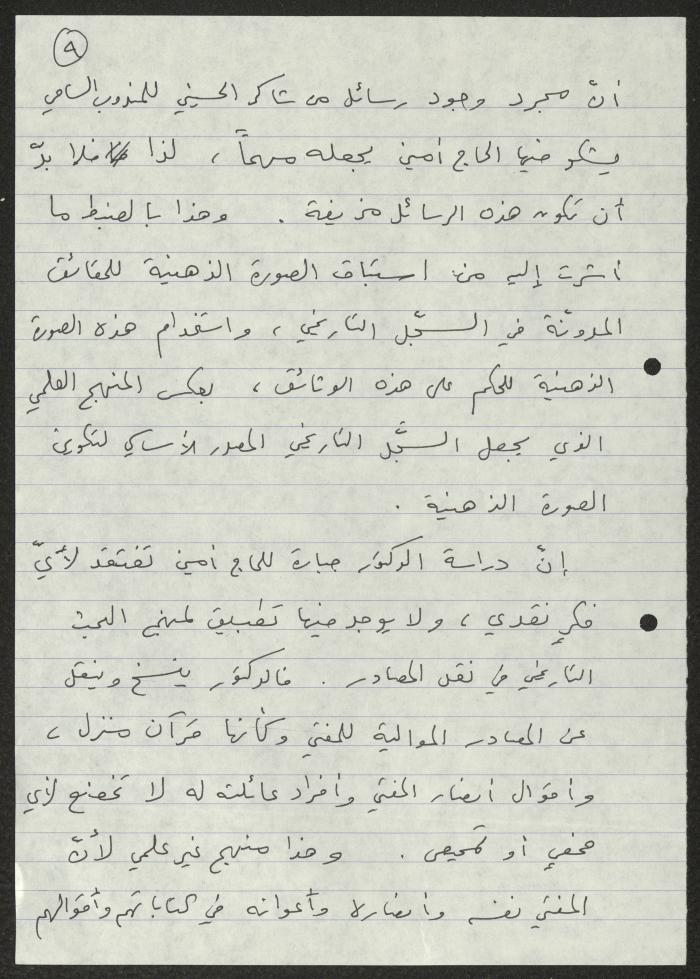 ٩
أنّ مجرد وجود رسائل من شاكر الحسيني للمندوب السامي
يشكو فيها الحاج أمين يجعله مهماً ، لذا فلا بدّ
أن تكون هذه الرسائل مزيفة . وهذا بالضبط ما
أشرت إليه من استباق الصورة الذهنية للحقائق
المدوّنة في السجّل التاريخي ، واستخدام هذه الصورة
الذهنية للحكم على هذه الوثائق ، بعكس المنهج العلمي
الذي يجعل السجّل التاريخي المصدر الأساسي لتكوين
الصورة الذهنية .
إنّ دراسة الدكتور جبارة للحاج أمين تفتقد لأيّ
فكرٍ نقدي ، ولا يوجد فيها تطبيق لمنهج البحث
التاريخي في نقل المصادر . فالدكتور ينسخ وينقل
عن المصادر الموالية للمفتي وكأنها قرآن منزل ،
وأقوال أنصار المفتي وأفراد عائلته له لا تخضع لأي
فحصٍ أو تمحيص . وهذا منهج غير علمي لأنّ
المفتي نفسه وأنصاره وأعوانه في كتاباتهم وأقوالهم